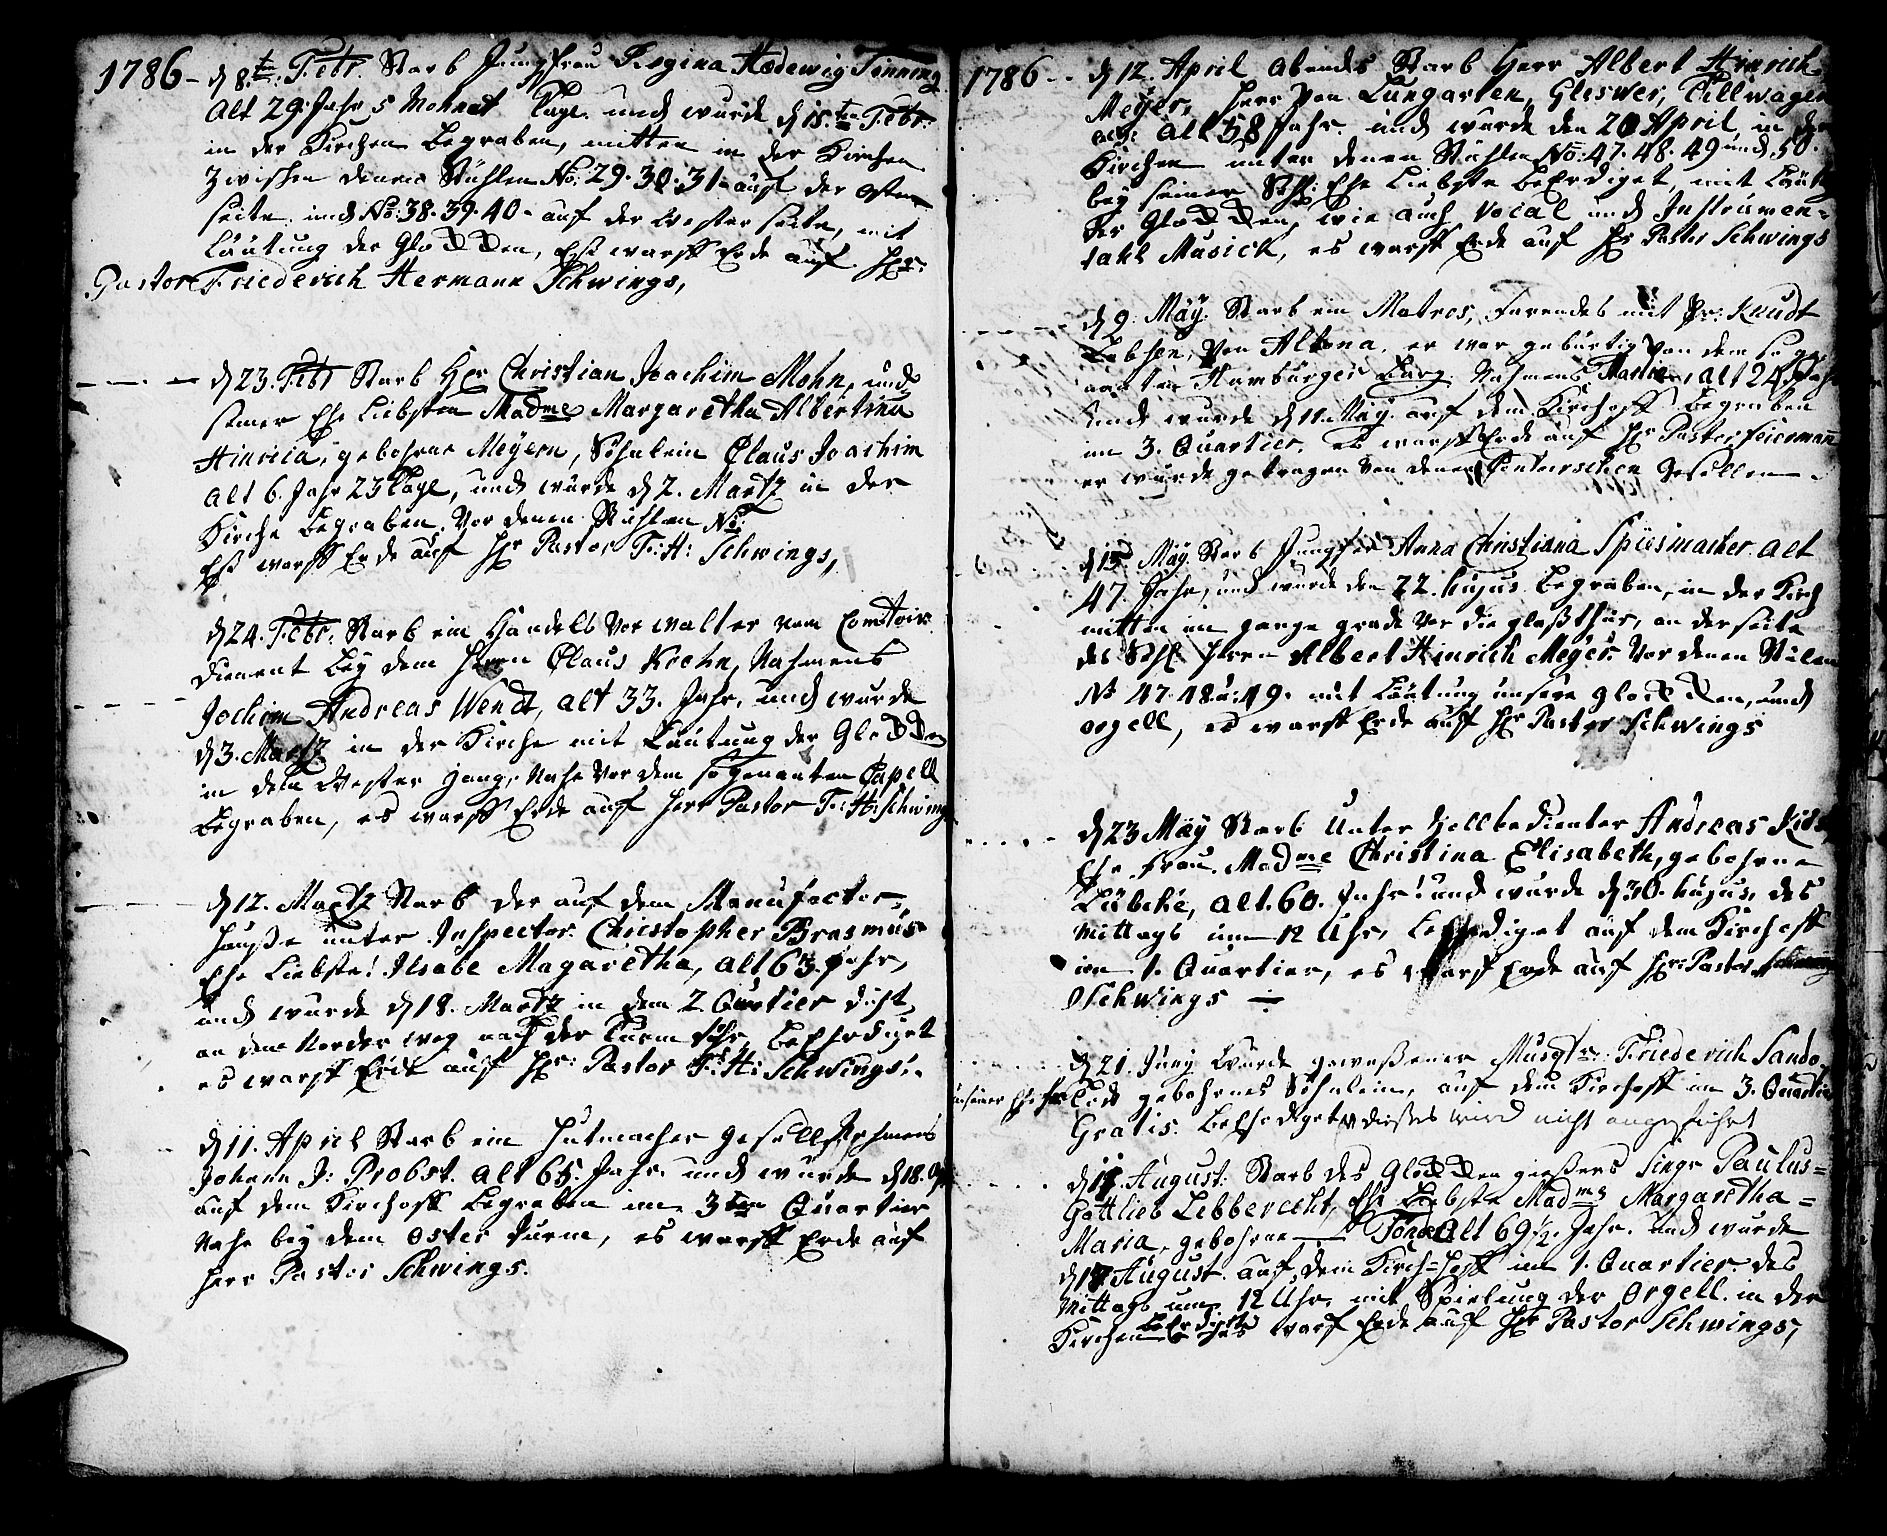 1786 – d 8te Febr. Starb Jungfrau Regina Hedewig Tönning
Alt 29 Jahr 5 Mohnat Tage und wurde d 15ten Febr:
in der Kirchen Begraben, mitten in der Kirchen
Zwischen denen Stühlen No: 29. 30. 31 auf der Oster
seite und No: 38. 39. 40 – auf der Wester seite, mit
Läutung der Glocken, Es warff Erde auf Hr:
Pastor Friederich Hermann Schwings,
d 23. Febr Starb Her Christian Joachim Mohn, und
seiner Ehe Liebsten Madme Margaretha Albertina
Hinrica, gebohrne Meyern, Söhnlein Claus Joachim
alt 6. Jahr 23 Tage, und wurde d 2. Martz in der
Kirche Begraben. Vor denen Stühlen No:
Es warff Erde auf Hr Pastor F: H: Schwings,
d 24. Febr. Starb ein Handels Verwalter vom Comtoir
dienent bey dem Herrn Claus Krohn, Nahmens
Jochim Andreas Wendt, alt 33. Jahr, und wurde
d 3. Martz in der Kirche mit Läutung der Glocken
in dem Wester gang, Nahe Vor dem so genanten Capell
Begraben, es warff Erde auf Herr Pastor F: H: Schwings
d 12. Martz Starb der auf dem Manufactor
Hauße unter Inspector Christopher Brasmus
Ehe Liebste! Ilsabe Magaretha, alt 63. Jahr,
und wurde d 18. Martz in dem 2. Quartier dicht
an dem Norder weg nach der Turm Thür Beehrdiget
es warff Erde auf Hr: Pastor F: H: Schwings.
d 11. April Starb ein Hutmacher gesell Nahmens
Johann J: Probst. Alt 65. Jahr und wurde d 18. Ap
auf dem Kirchoff Begraben im 3ten Quartier
Nahe bey dem Oster Turm, es warff Erde auf
Herr Pastor Schwings.
1786 – d 12. April Abends Starb Herr Albert Hinrich
Meyer, Herr von Lungarten, Gleswer, Tillwagen
alt 58 Jahr. und wurde den 20 April, in der
Kirchen unter denen Stühlen No: 47. 48. 49 und 50.
bey seiner Sehl: Ehe Liebste BeErdiget, mit Läutg
der Glocken, wie auch Vocal und Instrumen=
tahl Musick, es warff Erde auf Hr Paster Schwings
d 9. May. Starb ein Matros, Farendes mit Hr: Knudt
Lebsen, Von Altona, er war gebürtig Von dem so ge
nanten Hamburger Berg. Nahmens Hannen, alt 24 Jahr
und wurde d 11. May. auf dem Kirchoff Begraben
im 3. Quartier. es warff Erde auf Hr Paster Feiermann
er wurde getragen Von denen Gesellen
d 15 May. Starb Jungfer Anna Christiana Spiesmacher Alt
47 Jahr, und wurde den 22. hujus Begraben, in der Kirch
mitten im gange grade Vor die glaßthür, an der seite
des Sehl Herrn Albert Hinrich Meyer. Vor denen Stülen
No 47. 48. u: 49. mit Läutung unsere Glocken, und
orgell, es warff Erde auf Hr Pastor Schwings
d 23 May Starb Unter Zollbedienter Andreas
Ehe Frau. Madme Christina Elisabeth, gebohrne
Lübcke, alt. 60. Jahr! und wurde d 30. hujus, des
Mittags um 12 Uhr, beerdiget auf dem Kirchoff
im 1. Quartier, es warff Erde auf Hr: Pastor
Schwings
d 21. Juny Wurde geweßener Musqtr: Friederich Sando
Todt gebohrnes Söhnlein, auf dem Kirchoff im 3. Quartier
Gratis. Beehrdiget dieses wird nicht angeführt
d 11 August. Starb des Glocken gießers Sengr Paulus=
Gottlieb Lebberecht, Ehe Liebste Madme Margaretha=
Maria, gebohrne Alt 69 1/2. Jahr. und wurde
d 17 August. auf dem Kirch=hoff im 1. Quartier des
Mittags um 12 Uhr, mit Spielung der Orgell in der
Kirchen beErdiget es warf Erde auf Hr Pastor Schwings,